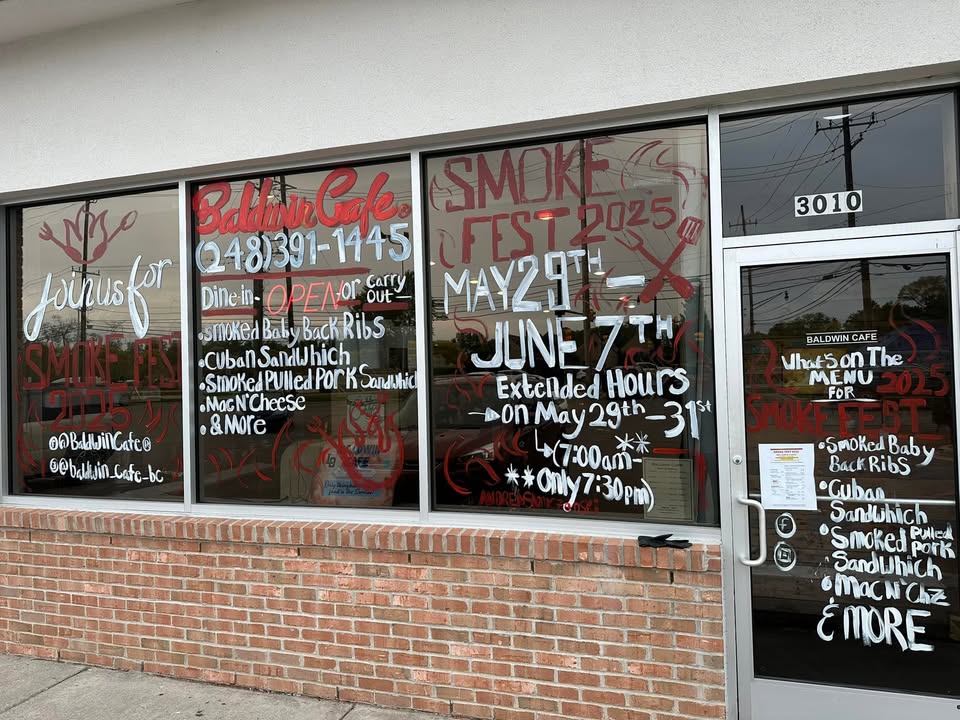 Join us for
SMOKE FEST
2025
@BaldwinCafe
@baldwin_cafe_bc
Baldwin Cafe
(248)391-1445
Dine-in- OPEN or carry out-
•Smoked Baby Back Ribs
•Cuban Sandwhich
•Smoked Pulled Pork Sandwhich
•Mac N' Cheese
• & More
SMOKE
FEST 2025
MAY 29TH -
JUNE 7TH
Extended Hours
→on May 29th-31st
↳(7:00am- **
**Only 7:30pm)
3010
BALDWIN CAFE
What's on The
MENU
FOR 2025
SMOKE FEST
•Smoked Baby
Back Ribs
•Cuban
Sandwhich
•Smoked Pulled
Pork
Sandwhich
•Mac N' Chz
& MORE